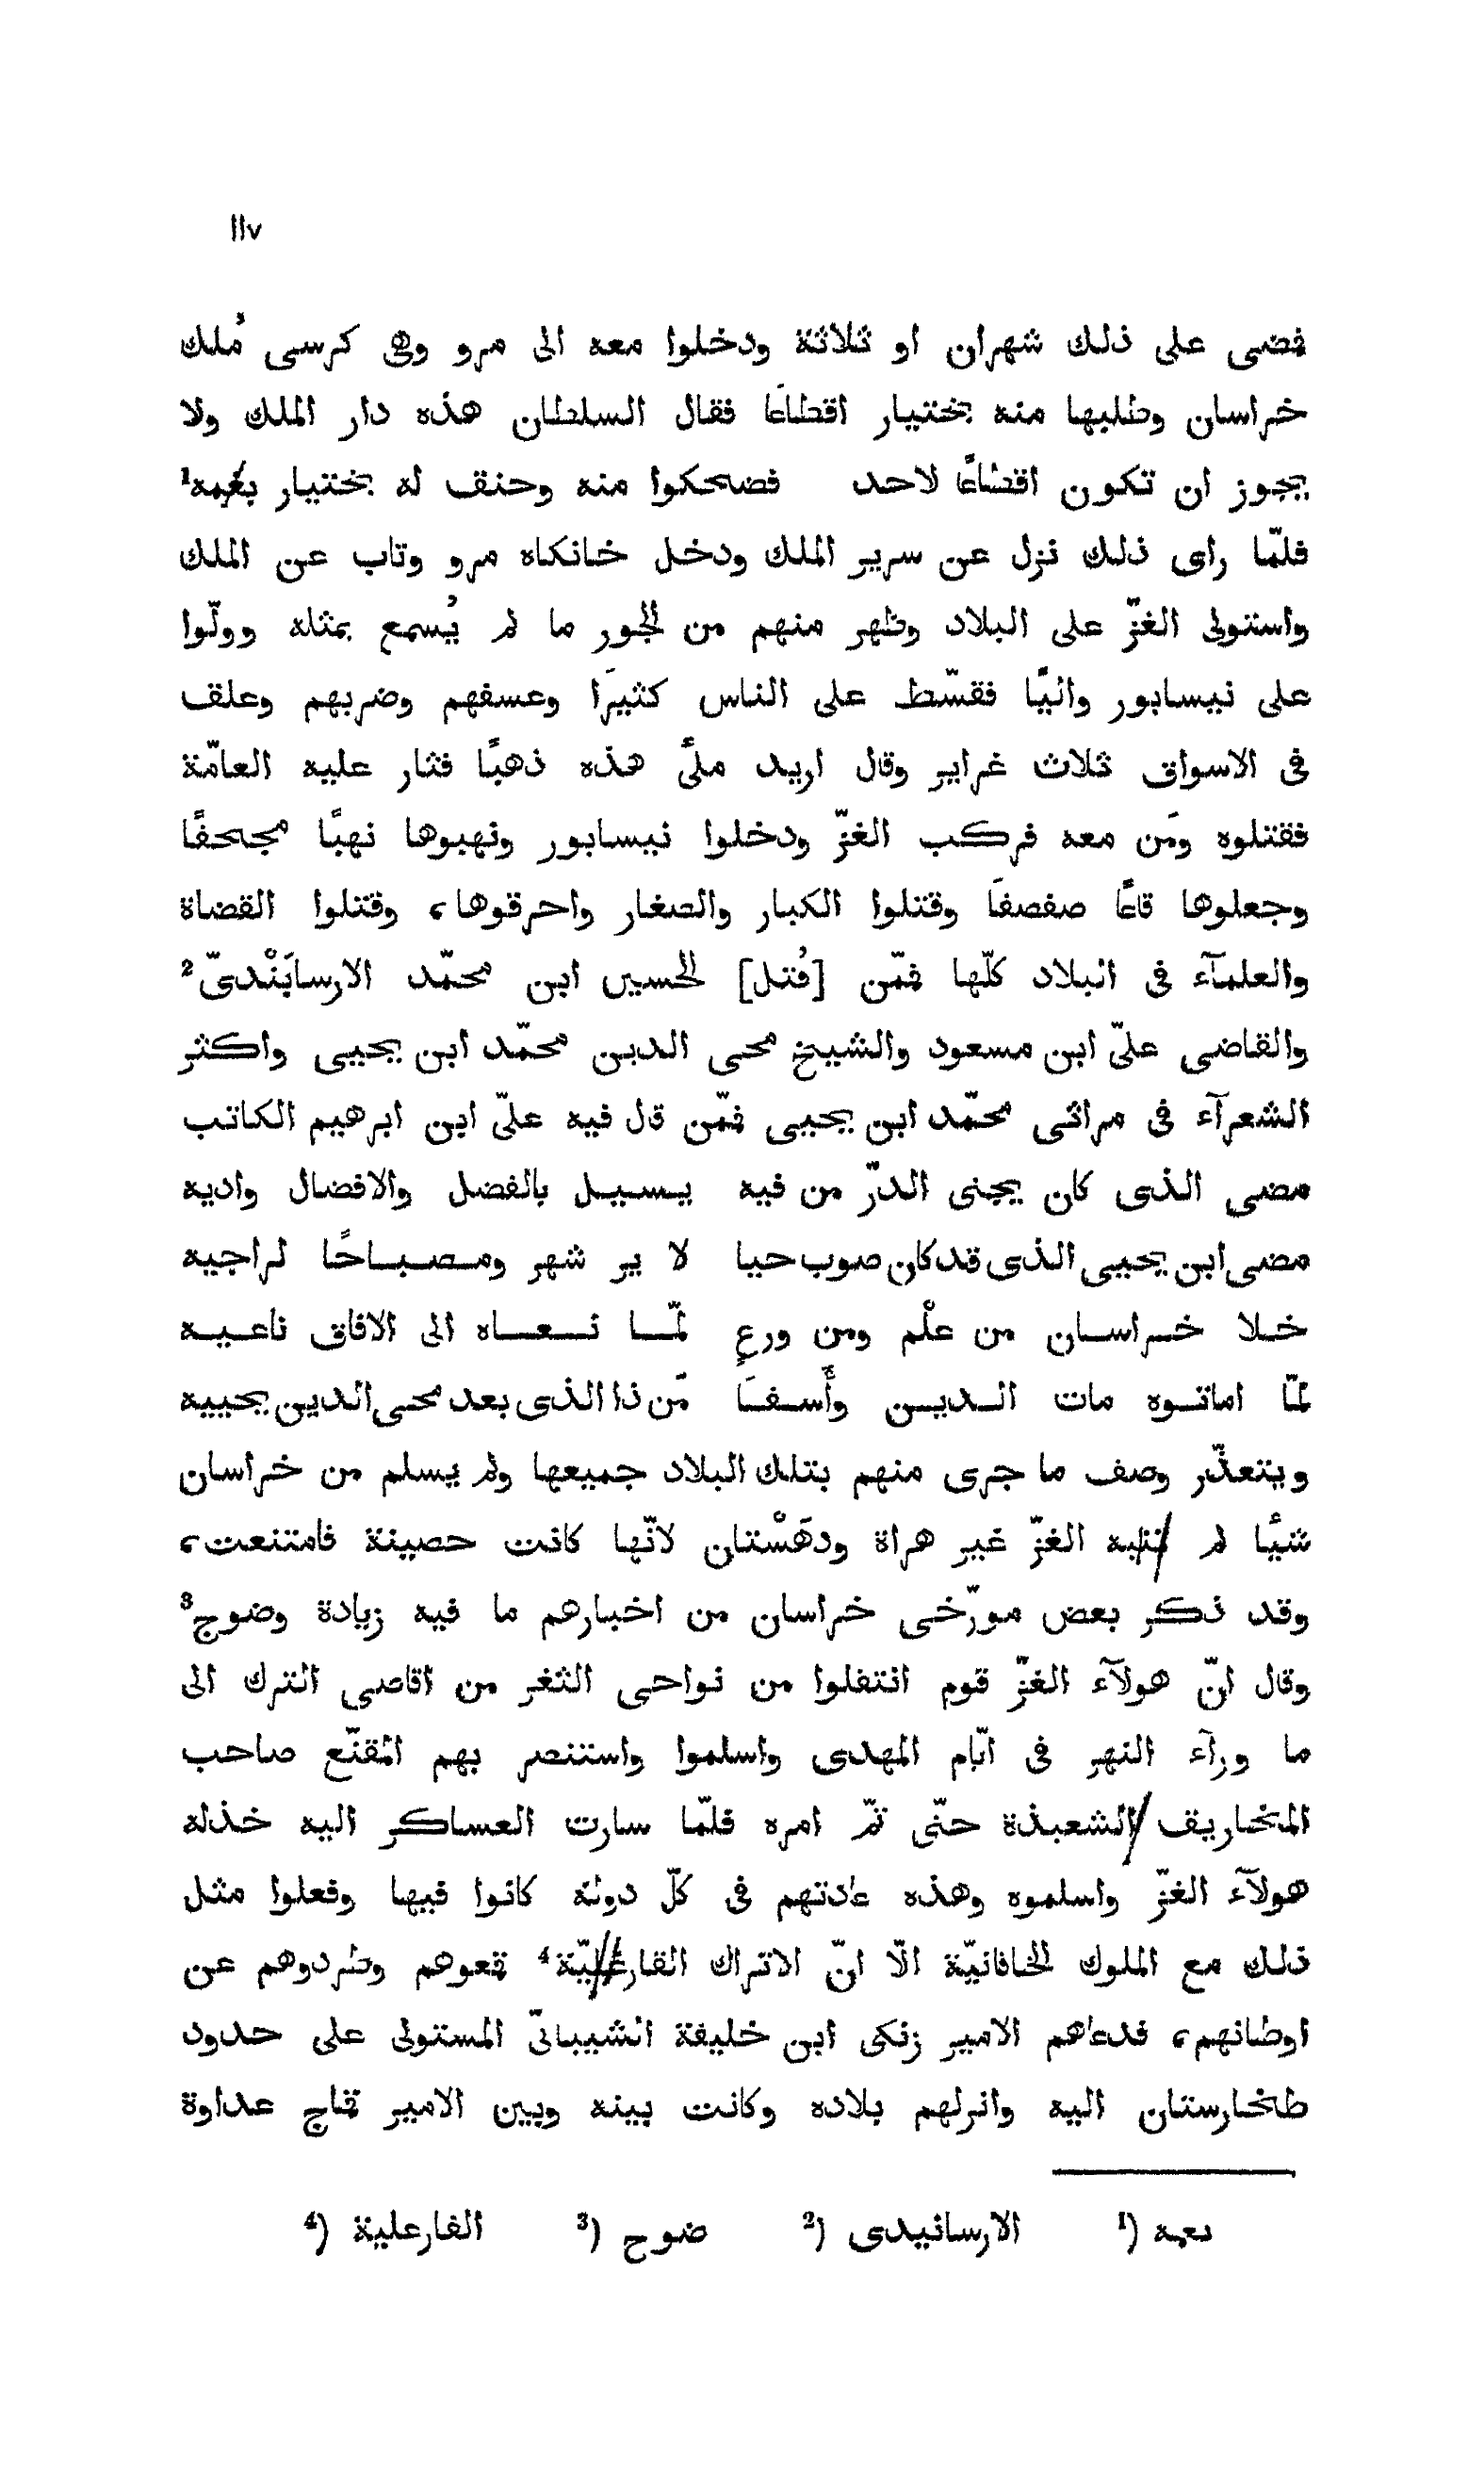 ١١٧
فمضى على ذلك شهران او ثلاثة ودخلوا معه الى مرو وهى كرسى مُلك
خراسان وطلبها منه بختيار اقطاعًا فقال السلطان هذه دار الملك ولا
يجوز ان تكون اقطاعًا لاحد فضحكوا منه وحنق له بختيار بغمه¹
فلمّا راى ذلك نزل عن سرير الملك ودخل خانكاه مرو وتاب عن الملك
واستولى الغزّ على البلاد وظهر منهم من الجور ما لم يُسمع بمثله وولّوا
على نيسابور واليًا فقسّط على الناس كثيرًا وعسفهم وضربهم وعلق
فى الاسواق ثلاث غراير وقال اريد ملئَ هذه ذهبًا فثار عليه العامّة
فقتلوه ومَن معه فركب الغزّ ودخلوا نيسابور ونهبوها نهبًا مجحفًا
وجعلوها قاعًا صفصفًا وقتلوا الكبار والصغار واحرقوها، وقتلوا القضاة
والعلمآء فى البلاد كلّها فمّمن [قُتل] الحسين ابن محمّد الارسابَنْدىّ²
والقاضى علىّ ابن مسعود والشيخ محى الدين محمّد ابن يحيى واكثر
الشعرآء فى مراثى محمّد ابن يحيى فممّن قال فيه علىّ ابن ابرهيم الكاتب
مضى الذى كان يجنى الدرّ من فيه يسيل بالفضل والافضال واديه
مضى ابن يحيى الذى قد كان صوب حيا لا ير شهر ومصباحًا لراجيه
خلا خراسان من علْم ومن ورعٍ لمّا نعاه الى الافاق ناعيه
لمّا اماتوه مات الدين وأَسفَا مَن ذا الذى بعد محى الدين يحييه
ويتعذّر وصف ما جرى منهم بتلك البلاد جميعها ولم يسلم من خراسان
شيًا لم الغزّ غير هراة ودهَسْتان لانّها كانت حصينة فامتنعت،
وقد ذكر بعض مورّخى خراسان من اخبارهم ما فيه زيادة وضوح³
وقال انّ هولآء الغزّ قوم انتقلوا من نواحى الثغر من اقاصى الترك الى
ما ورآء النهر فى ايّام المهدى واسلموا واستنصر بهم المقنّع صاحب
المخاريق الشعبذة حتّى تمّ امره فلمّا سارت العساكر اليه خذله
هولآء الغزّ واسلموه وهذه عادتهم فى كلّ دولة كانوا فيها وفعلوا مثل
ذلك مع الملوك الخاقانيّة الّا انّ الاتراك القارغليّة⁴ قمعوهم وطردوهم عن
اوطانهم، فدعاهم الامير زنكى ابن خليفة الشيبانىّ المستولى على حدود
طخارستان اليه وانزلهم بلاده وكانت بينه وبين الامير قماج عداوة
¹) نعمه ²) الارسانيدى ³) ضوح ⁴) الفارعلية